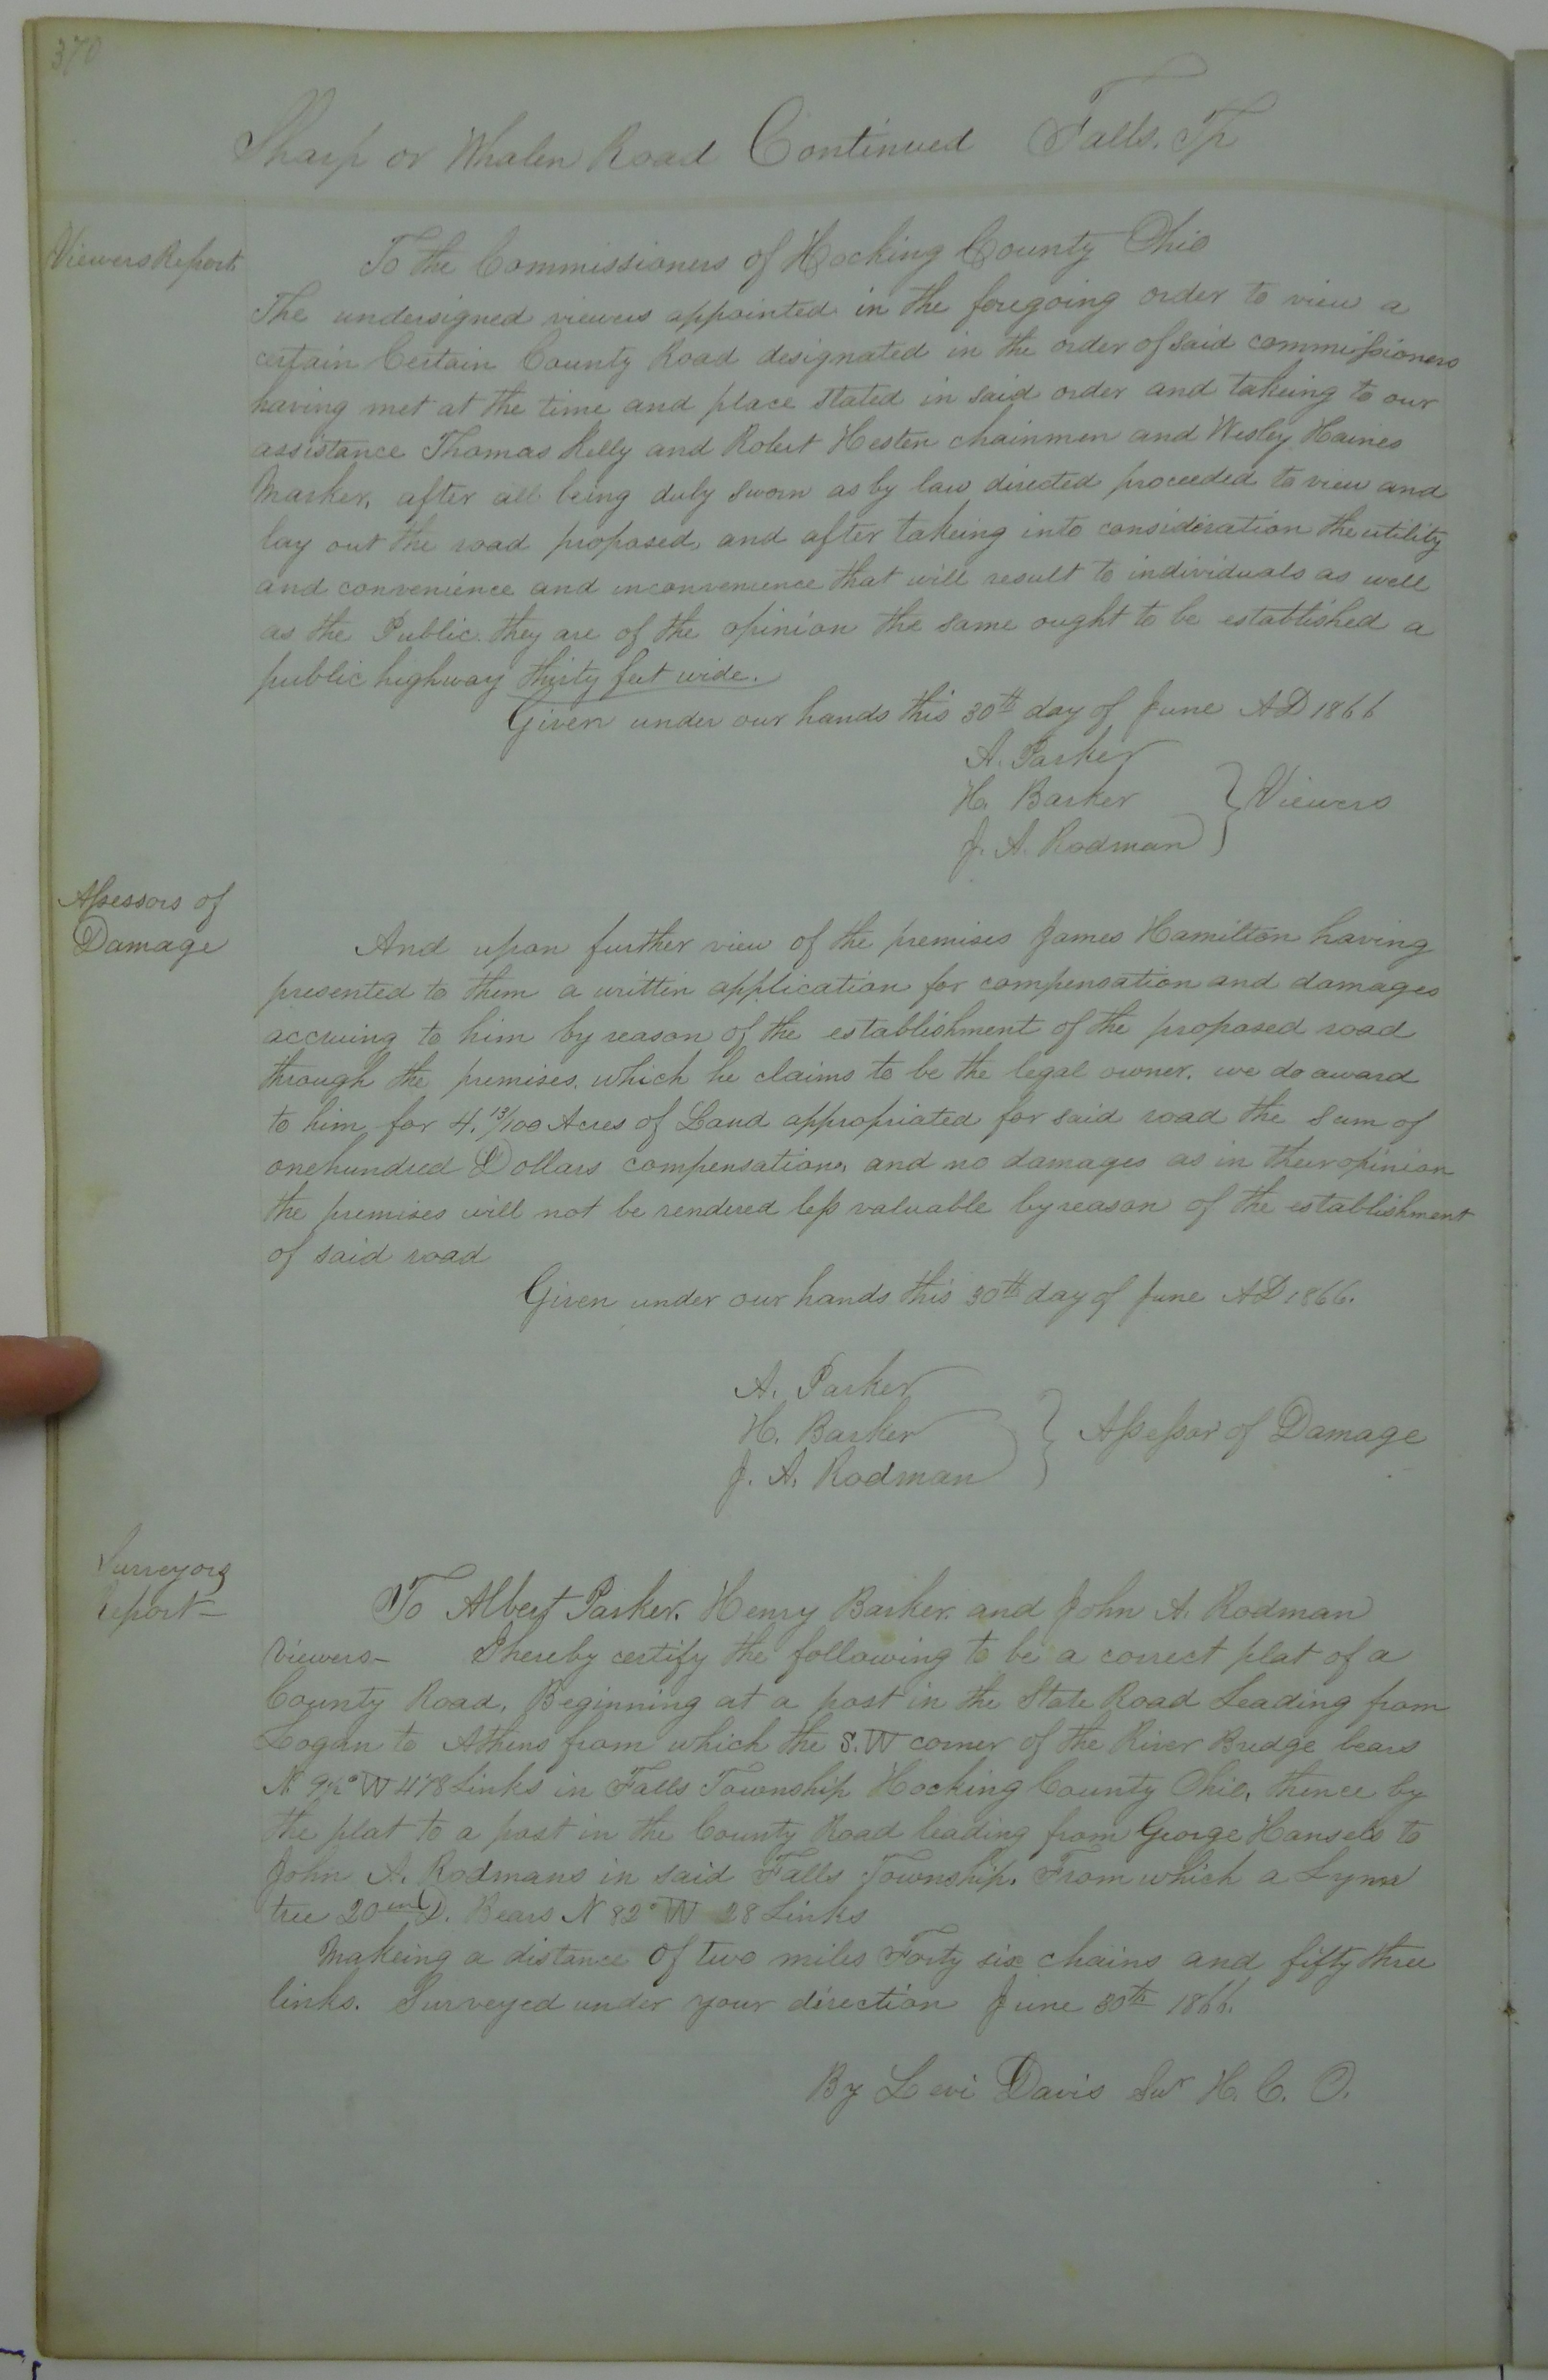 370
Sharp or Whalen Road Continued Falls. Tp
Viewers Report.
To the Commissioners of Hocking County Ohio
The undersigned viewers appointed in the foregoing order to view a
certain Certain County Road designated in the order of said commissioners
having met at the time and place stated in said order and takeing to our
assistance Thomas Kelly and Robert Hesten chainmen and Wesley Haines
Marker, after all being duly sworn as by law directed proceeded to view and
lay out the road proposed, and after takeing into consideration the utility
and convenience and inconvenience that will result to individuals as well
as the Public. they are of the opinion the same ought to be established a
public highway thirty feet wide.
Given under our hands this 30th day of June AD 1866
A. Parker
H. Barker } Viewers
J. A. Rodman
Assessors of
Damage
And upon further view of the premises James Hamilton having
presented to them a written application for compensation and damages
accruing to him by reason of the establishment of the proposed road
through the premises, which he claims to be the legal owner. we do award
to him for 4. 13/100 Acres of Land appropriated for said road the Sum of
onehundred Dollars compensation, and no damages as in their opinion
the premises will not be rendered less valuable by reason of the establishment
of said road
Given under our hands this 30th day of June AD 1866.
A. Parker
H. Barker } Assessor of Damage
J. A. Rodman
Surveyors
Report-
To Albert Parker. Henry Barker. and John A. Rodman
Viewers- I hereby certify the following to be a correct plat of a
County Road, Beginning at a post in the State Road Leading from
Logan to Athens from which the S. W corner of the River Bridge bears
N 9½° W 478 Links in Falls Township Hocking County Ohio, thence by
the plat to a post in the County Road leading from George Hansels to
John A. Rodmans in said Falls Township. From which a Lynn
tree 20 in D. Bears N 82° W 28 Links
Makeing a distance of two miles Forty six chains and fifty three
links. Surveyed under your direction June 30th 1866.
By Levi Davis Sur H. C. O.